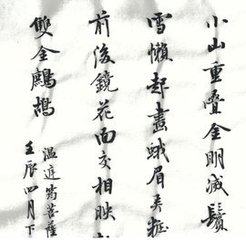 小山重疊金明滅鬢
雪懶起畫蛾眉弄粧
前後鏡花面交相映
雙金鷓鴣
溫庭筠菩薩
壬辰四月下